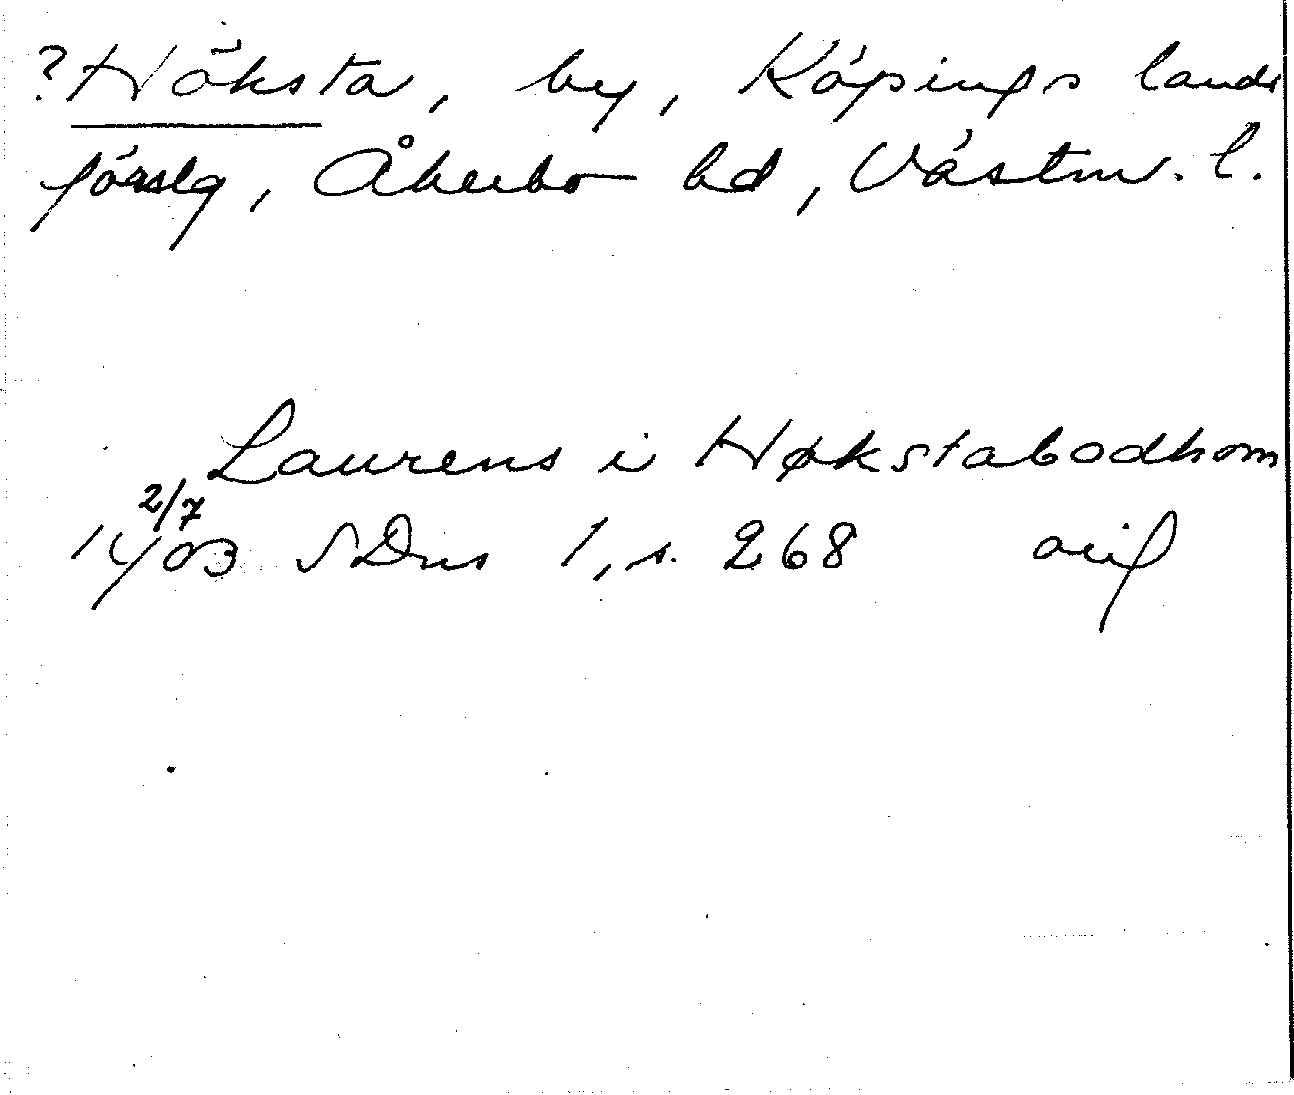 ?Höksta, by, Köpings lands
förslg, Åkerbo hd, Västm. l.
Laurens i Høkstabodhom
2/7
1403 SDns 1, s. 268 avip